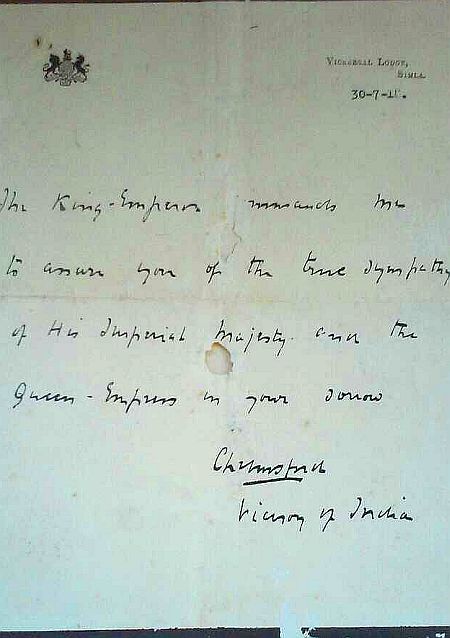 Viceregal Lodge,
Simla.
30-7-1
The King-Emperor commands me
to assure you of the true sympathy
of His Imperial Majesty and the
Queen-Empress in your sorrow
Chelmsford
Viceroy of India